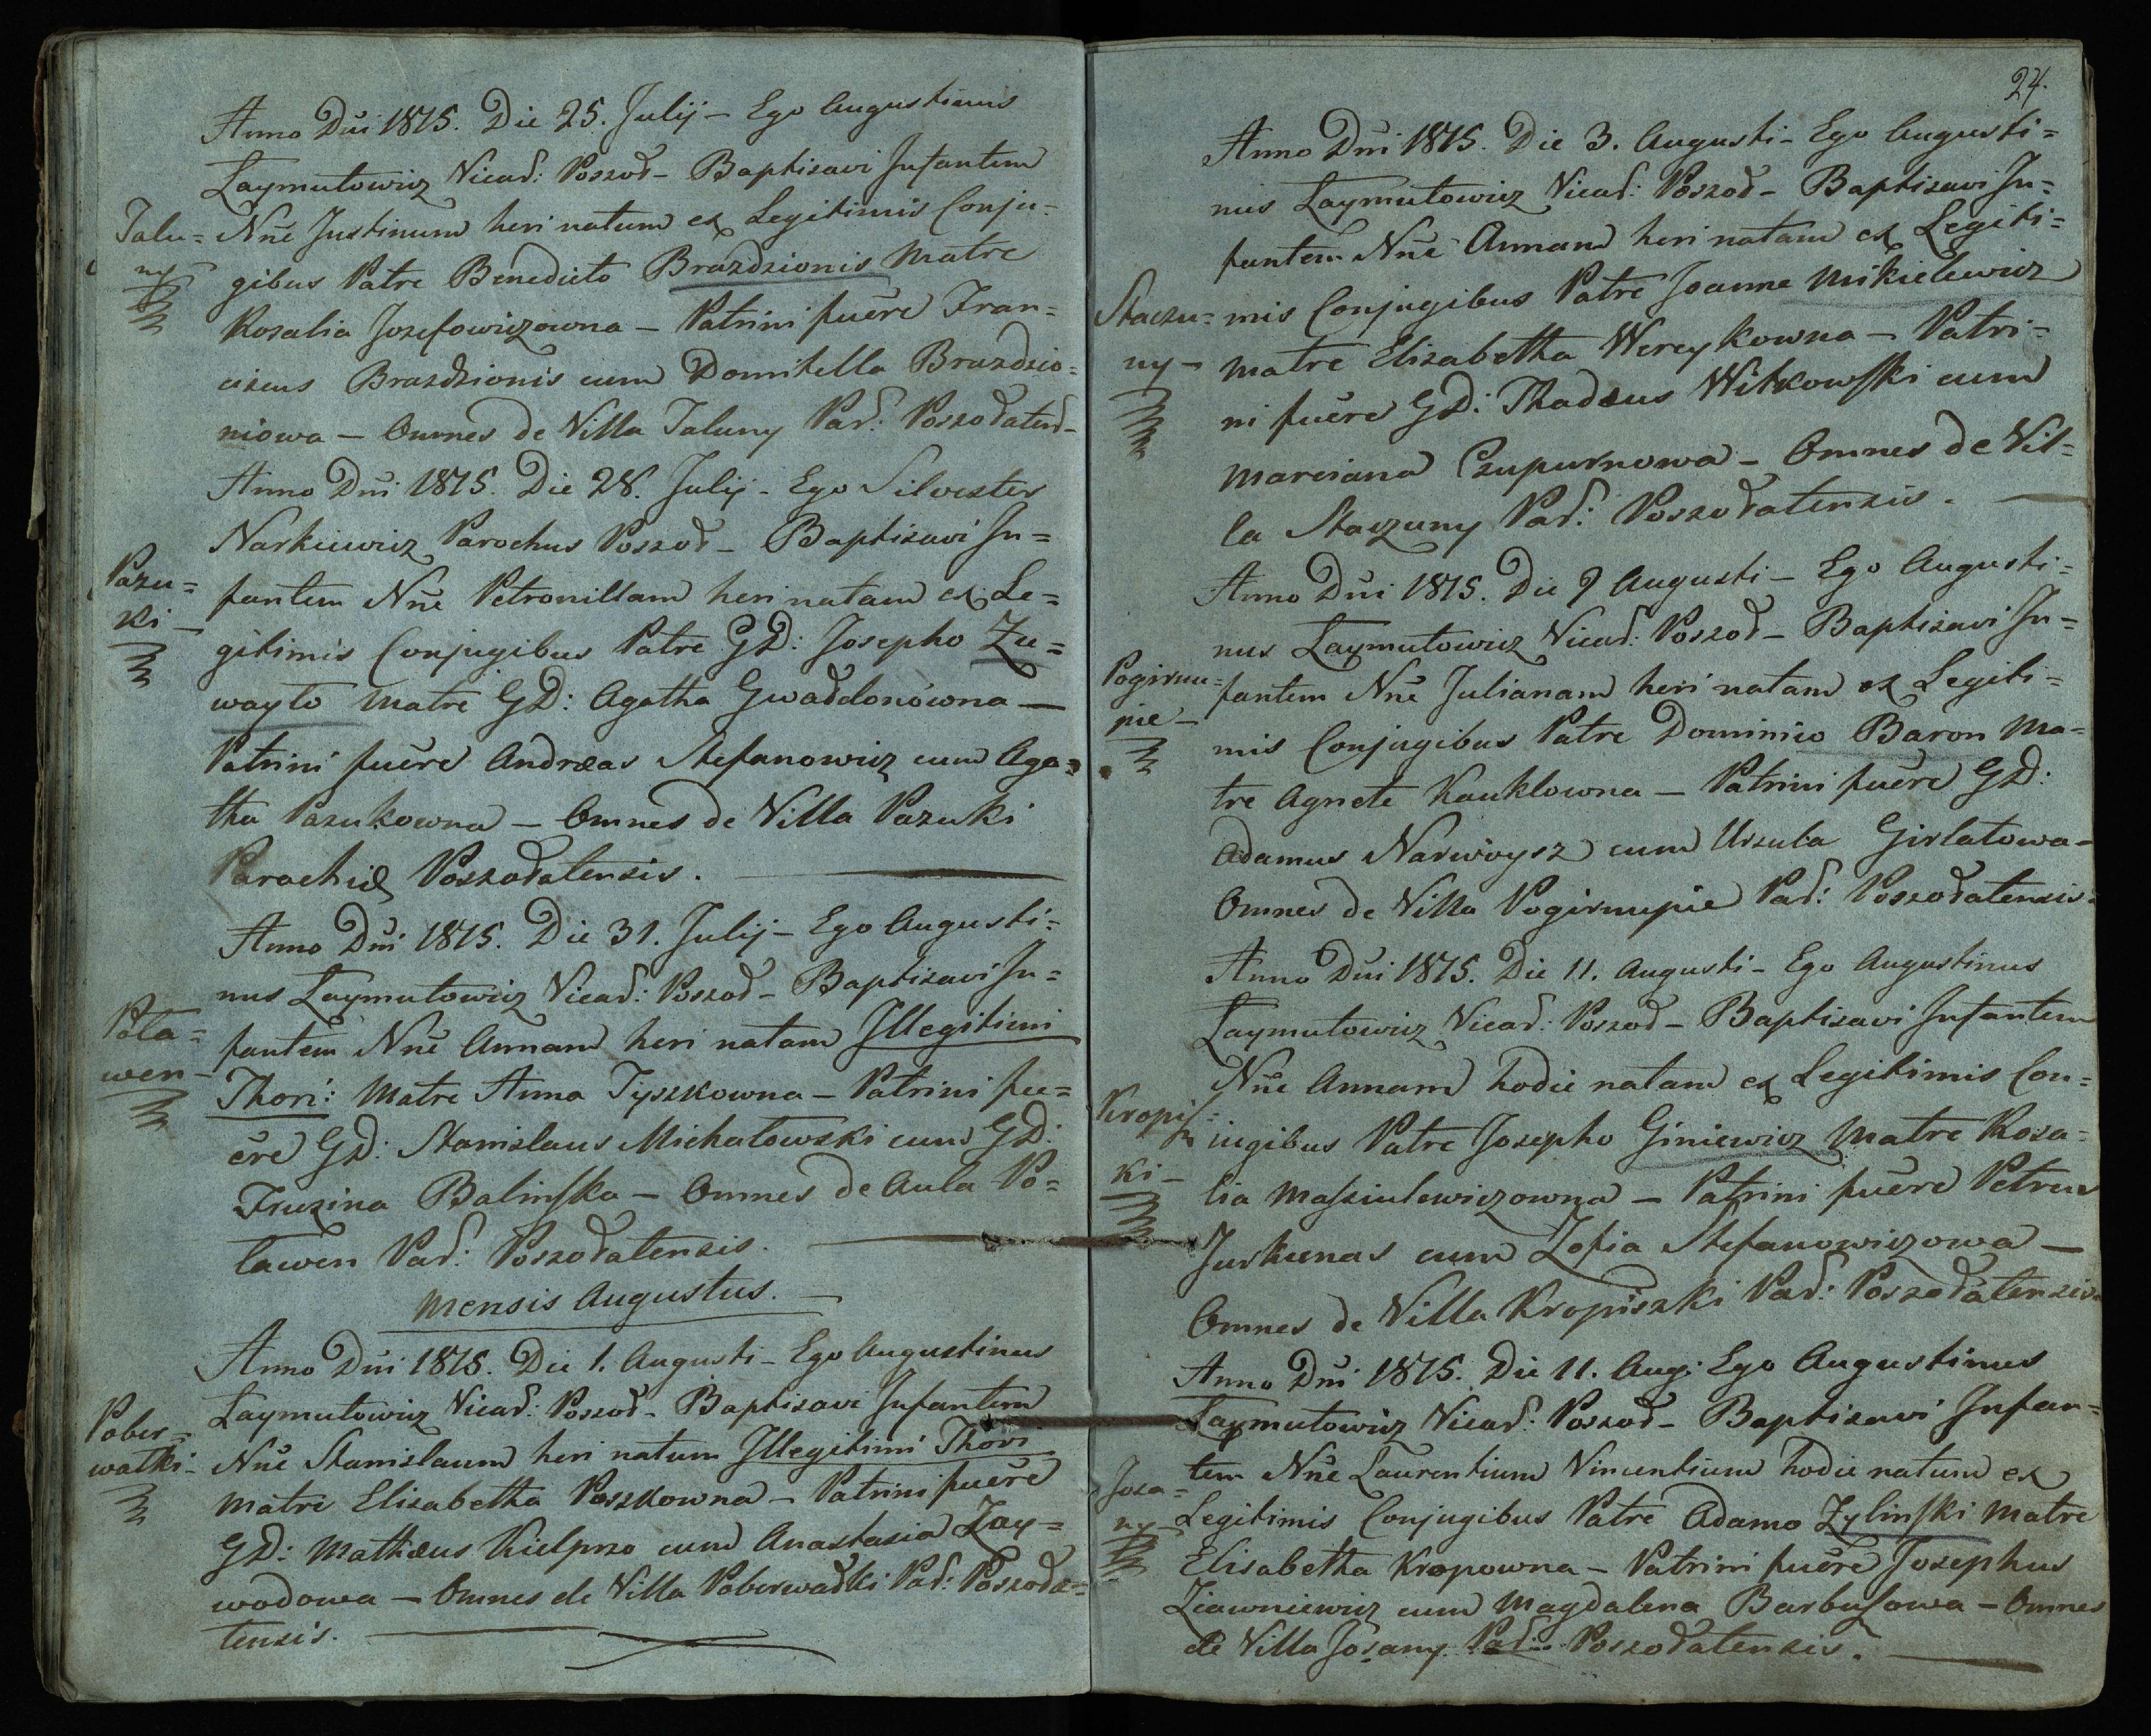 Anno Dñi 1815. Die 25. Julij – Ego Augustinus
Laymutowicz Vicar: Poszod – Baptisavi Infantem
Talu= Nñe Justinum heri natum ex Legitimis Conju=
ny gibus Patre Benedicto Brazdzionis Matre
Rosalia Jozefowiczowna – Patrini fuêre Fran=
ciscus Brazdzionis cum Domitella Brazdzio=
niowa – Omnes de Villa Taluny Par: Poszodaten–
Anno Dñi 1815. Die 28. Julij – Ego Silvester
Narkiewicz Parochus Poszod – Baptisavi In=
Pazu= fantem Nñe Petronillam heri natam ex Le=
ki – gitimis Conjugibus Patre GD: Josepho Zu=
wayto Matre GD: Agatha Gwaddonówna –
Patrini fuêre Andræas Stefanowicz cum Aga=
tha Pazukowna – Omnes de Villa Pazuki
Parochiæ Poszodatensis.
Anno Dñi 1815. Die 31. Julij – Ego Augusti=
nus Laymutowicz Vicar: Poszod – Baptisavi In=
Pota= fantem Nñe Annam heri natam Illegitimi
wen – Thori: Matre Anna Tyszkowna – Patrini fu=
êre GD: Stanislaus Michatowski cum GD:
Fruzina Balinska – Omnes de Aula Po=
tawen Par: Poszodatensis.
Mensis Augustus. –
Anno Dñi 1815. Die 1. Augusti – Ego Augustinus
Laymutowicz Vicar: Poszod – Baptisavi Infantem
Pober=
watki – Nñe Stanislaum heri natum Illegitimi Thori
Matre Elisabetha Poszkowna – Patrini fuêre
GD: Mathæus Kielpszo cum Anastasia Zay=
wodowa – Omnes de Villa Poberwadki Par: Poszoda=
tensis.
24.
Anno Dñi 1815. Die 3. Augusti – Ego Augusti=
nus Laymutowicz Vicar: Poszod – Baptisavi In=
fantem Nñe Annam heri natam ex Legiti=
Staczu= mis Conjugibus Patre Joanne Mikielewicz
ny – Matre Elisabetha Wereykowna – Patri=
ni fuêre GD: Thadeus Witkowski cum
Marciana Czupurnowa – Omnes de Vil=
la Staczuny Par: Poszodatensis.
Anno Dñi 1815. Die 9 Augusti – Ego Augusti=
nus Laymutowicz Vicar: Poszod – Baptisavi In=
Pogirnu= fantem Nñe Julianam heri natam ex Legiti=
pie – mis Conjugibus Patre Dominico Baron Ma=
tre Agnete Kauklowna – Patrini fuêre GD:
Adamus Narwoysz cum Ursula Girlatowa –
Omnes de Villa Pogirnupie Par: Poszodatensis.
Anno Dñi 1815. Die 11. Augusti – Ego Augustinus
Laymutowicz Vicar: Poszod – Baptisavi Infantem
Nñe Annam hodie natam ex Legitimis Con=
Kropisz= iugibus Patre Josepho Giniewicz Matre Rosa=
ki – lia Masziulewiczowna – Patrini fuêre Petrus
Jurkunas cum Zofia Stefanowiczowa –
Omnes de Villa Kropiszki Par: Poszodatensis
Anno Dñi 1815. Die 11. Aug: Ego Augustinus
Laymutowicz Vicar: Poszod – Baptisavi Infan=
Joza= tem Nñe Laurentium Vincentium hodie natum ex
ny – Legitimis Conjugibus Patre Adamo Zylinski Matre
Elisabetha Kropowna – Patrini fuêre Josephus
Ziawniewicz cum Magdalena Barbusowa – Omnes
de Villa Jozany Par: Poszodatensis.